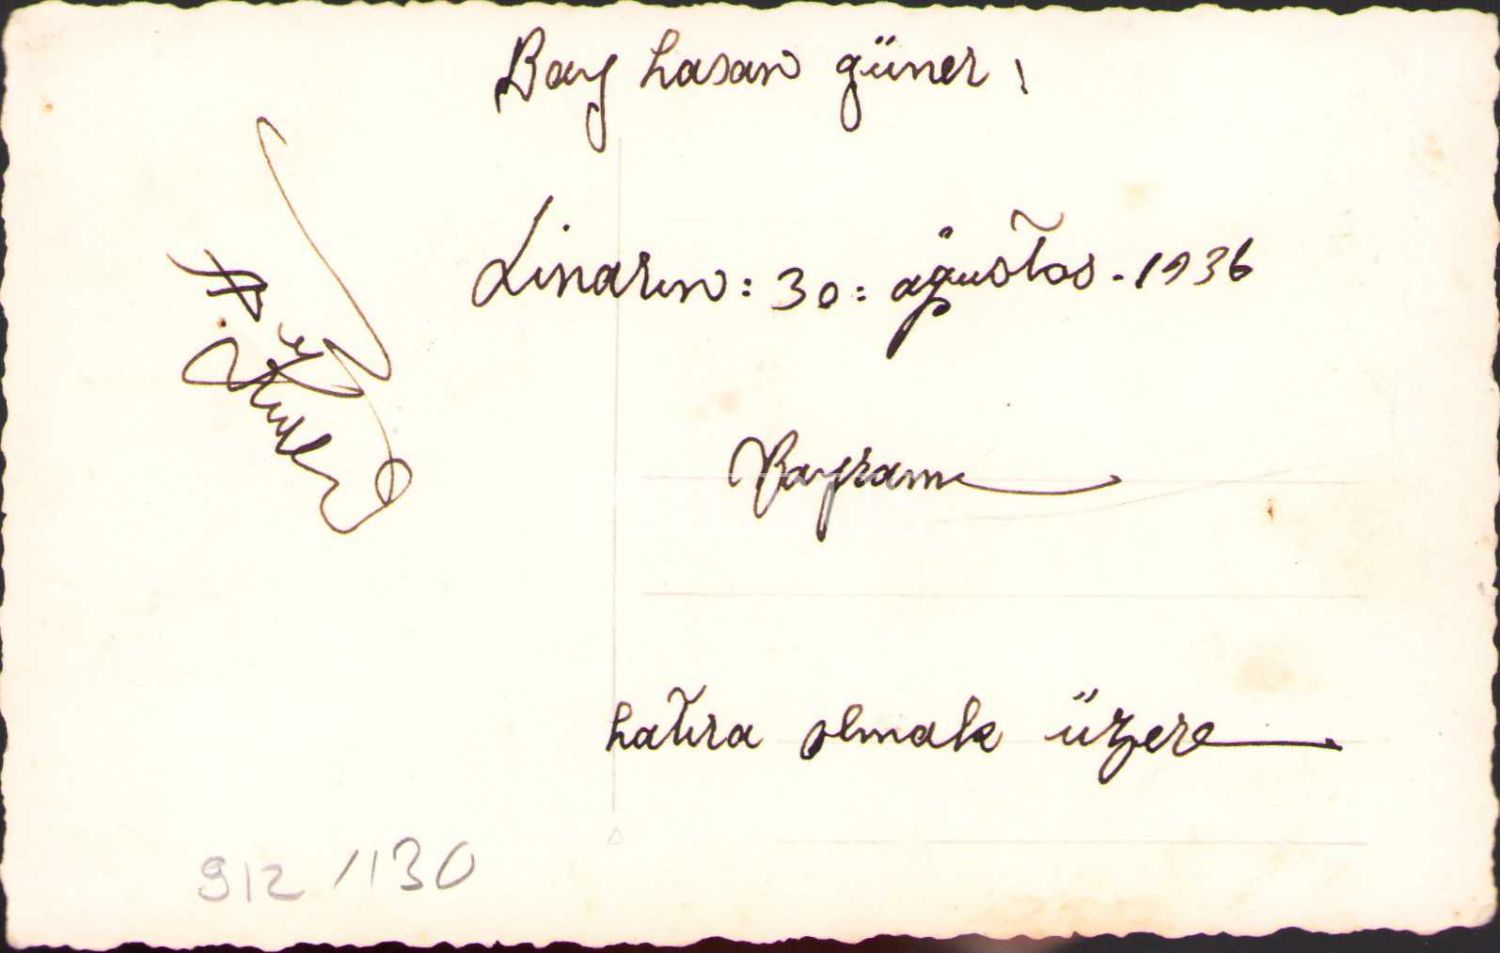 Bay hasan güner!
30: ağustos. 1936
Bayram
hatıra olmak üzere
912/130